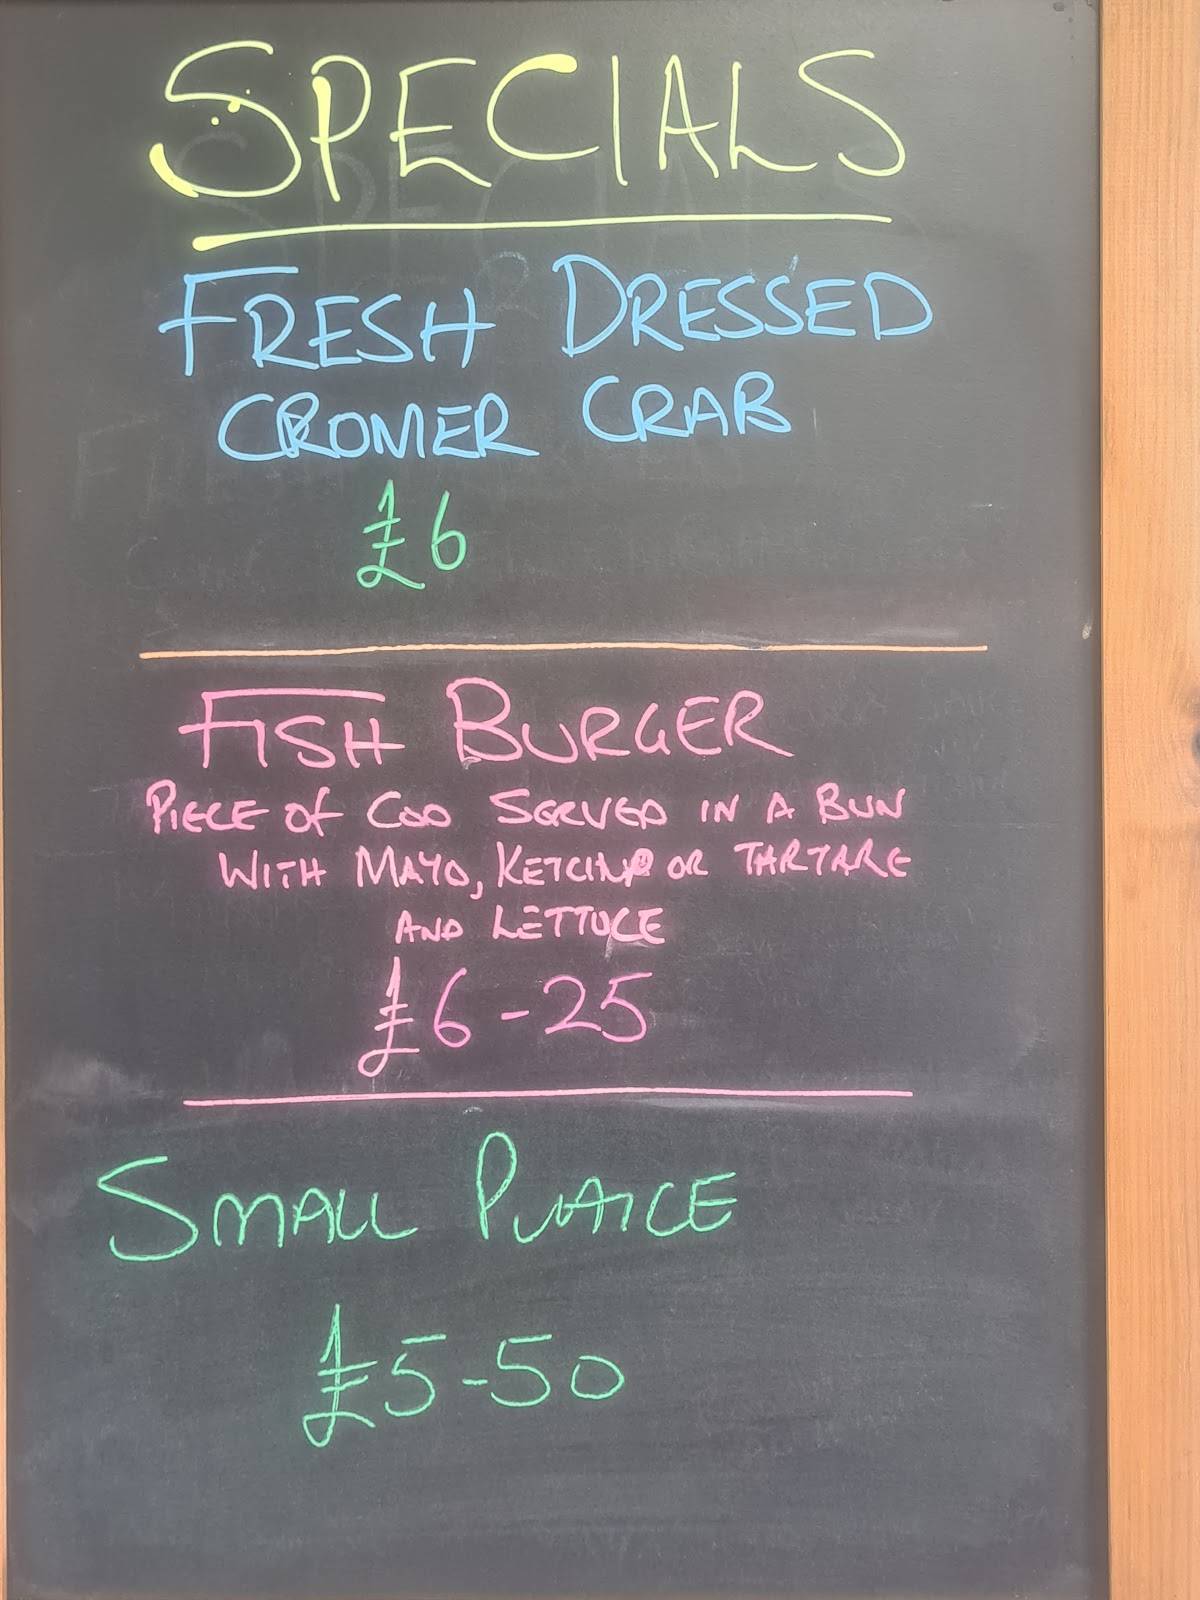 SPECIALS
FRESH DRESSED
CROMER CRAB
£6
FISH BURGER
PIECE OF COD SERVED IN A BUN
WITH MAYO, KETCHUP OR TARTARE
AND LETTUCE
£6-25
SMALL PLAICE
£5-50